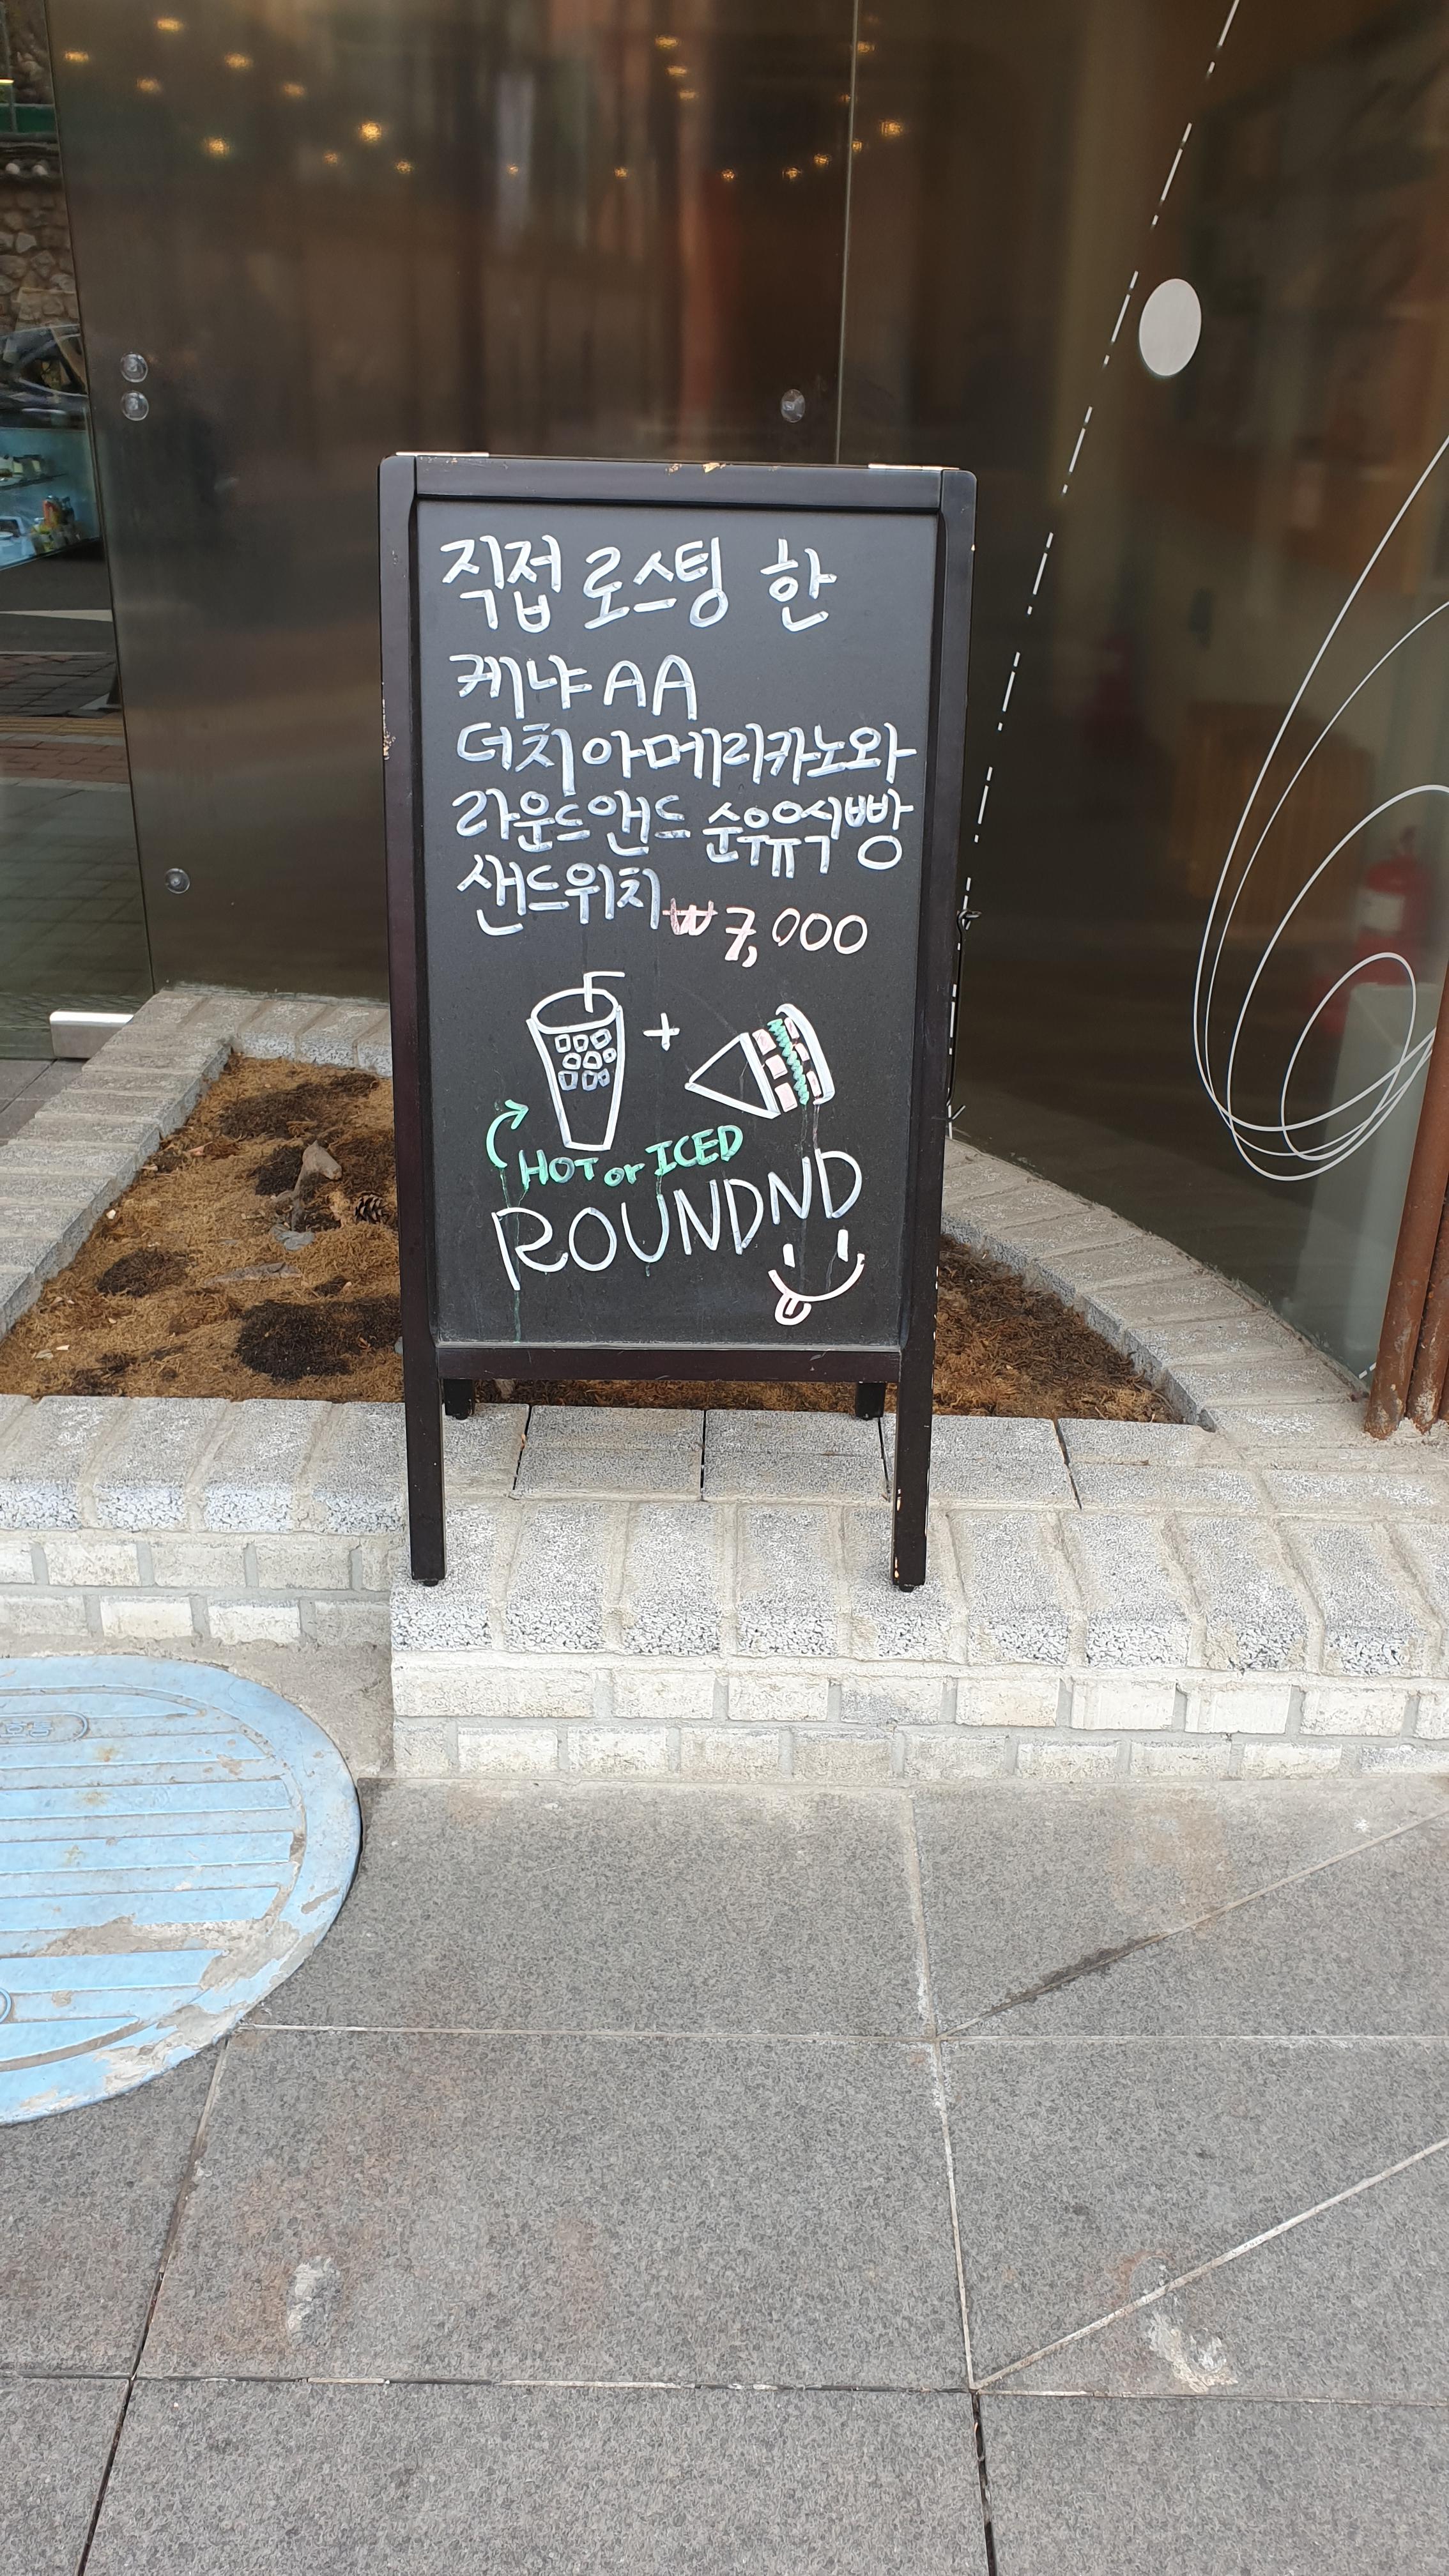 직접 로스팅 한
케냐 AA
더치아메리카노와
라운드앤드 순우유식빵
샌드위치 ₩7,000
+
HOT or ICED
ROUNDND